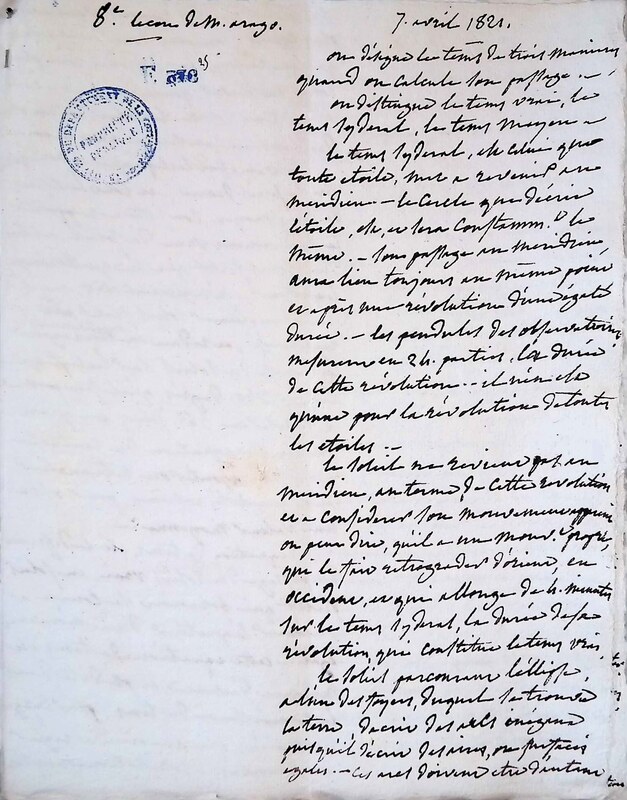 8.e leçon de M. arago.
7. avril 1821.
25
E 378
PROPRIÉTÉ
PUBLIQUE
on désigne le tems de trois manieres
quand on calcule son passage. —
on distingue le tems vrai, le
tems syderal, le tems moyen —
le tems syderal, est celui que
toute etoile, met a revenir au
meridien — le cercle que décrit
l'étoile, est, et sera constamm.t le
même. — son passage au meridien
aura lieu toujours au même point
et après une révolution d'une égale
durée. — les pendules des observatoires
mesurent en 24. parties, la durée
de cette révolution. — il n'en est
qu'une pour la révolution de toutes
les etoiles —
le soleil ne revient pas au
meridien, au terme de cette revolution
et a considerer son mouvement apparent
on peut dire, qu'il a un mouv.t propre,
qui le fait retrograder d'orient, en
occident, et qui allonge de 4. minutes
sur le tems syderal, la durée de sa
révolution, qui constitue le tems vrai
le soleil parcourant l'éllipse,
a l'un des foyers, duquel se trouve
la terre, decrit des arcs inégaux
puisqu'il décrit des aires, ou surfaces
egales. — Ces arcs doivent etre d'autant